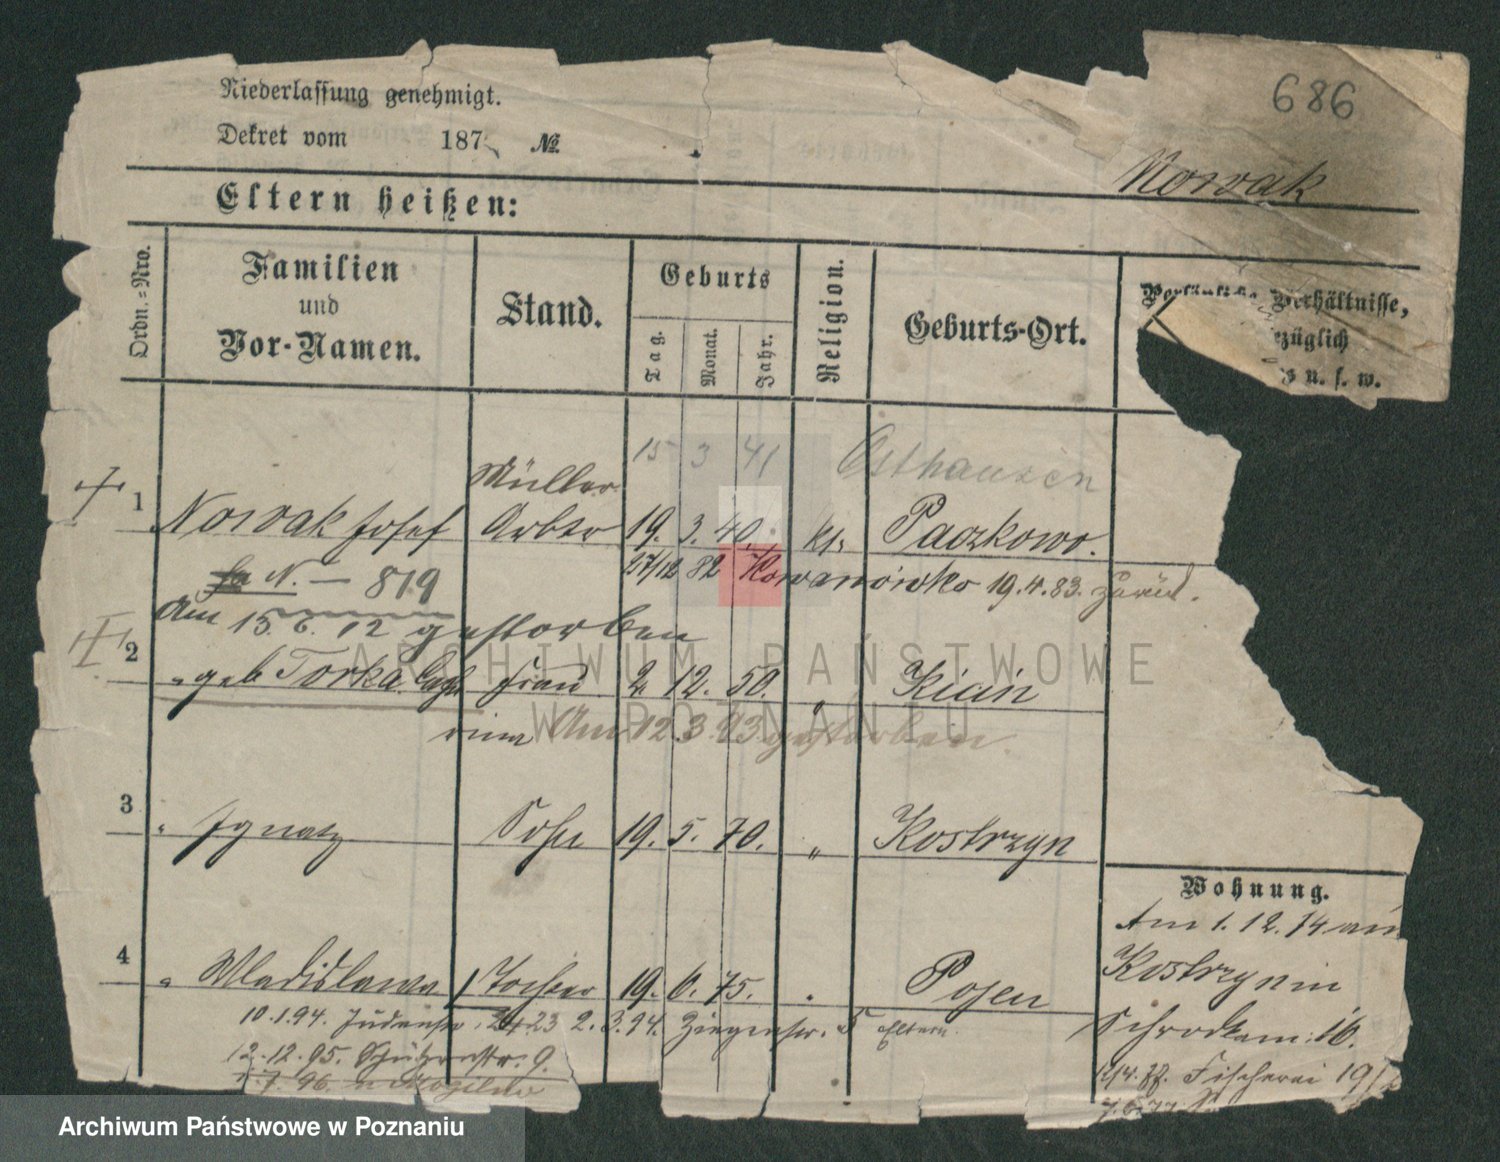 686
Niederlassung genehmigt.
Dekret vom 187 №
Nowak
Eltern heißen:
Ordn.=Nro.
Familien
und
Vor-Namen.
Stand.
Geburts
Tag.
Monat.
Jahr.
Religion.
Geburts-Ort.
Verhältnisse,
u. s. w.
15 3 41 Osthausen
Müller
1 Nowak Josef Arbtr 19. 3. 40. kt. Paczkowo.
N. — 819 27/12 82 Kowanowko 19.4.83. zurück.
Am 15. 6. 12 gestorben
2 " geb Torka Frau 2. 12. 50. " Kicin
Am 12.3.93 gestorben.
3 " Ignatz Sohn 19. 5. 70. " Kostrzyn
Wohnung.
Am 1. 12. 74 aus
4 " Wladislawa Tochter 19. 6. 75. Posen
Kostrzyn in
10.1.94. Judenstr. 2.3.94. Ziegenstr. 5 Eltern.
Schrodkam: 16.
12.12.95. Schützenstr. 9.
Fischerei 19
7. 96. n Mogilno
ARCHIWUM PAŃSTWOWE
W POZNANIU
Archiwum Państwowe w Poznaniu